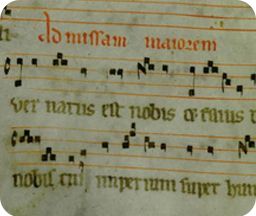 Ad missam maiorem
uer natus est nobis et filius
nobis cui imperium super hum